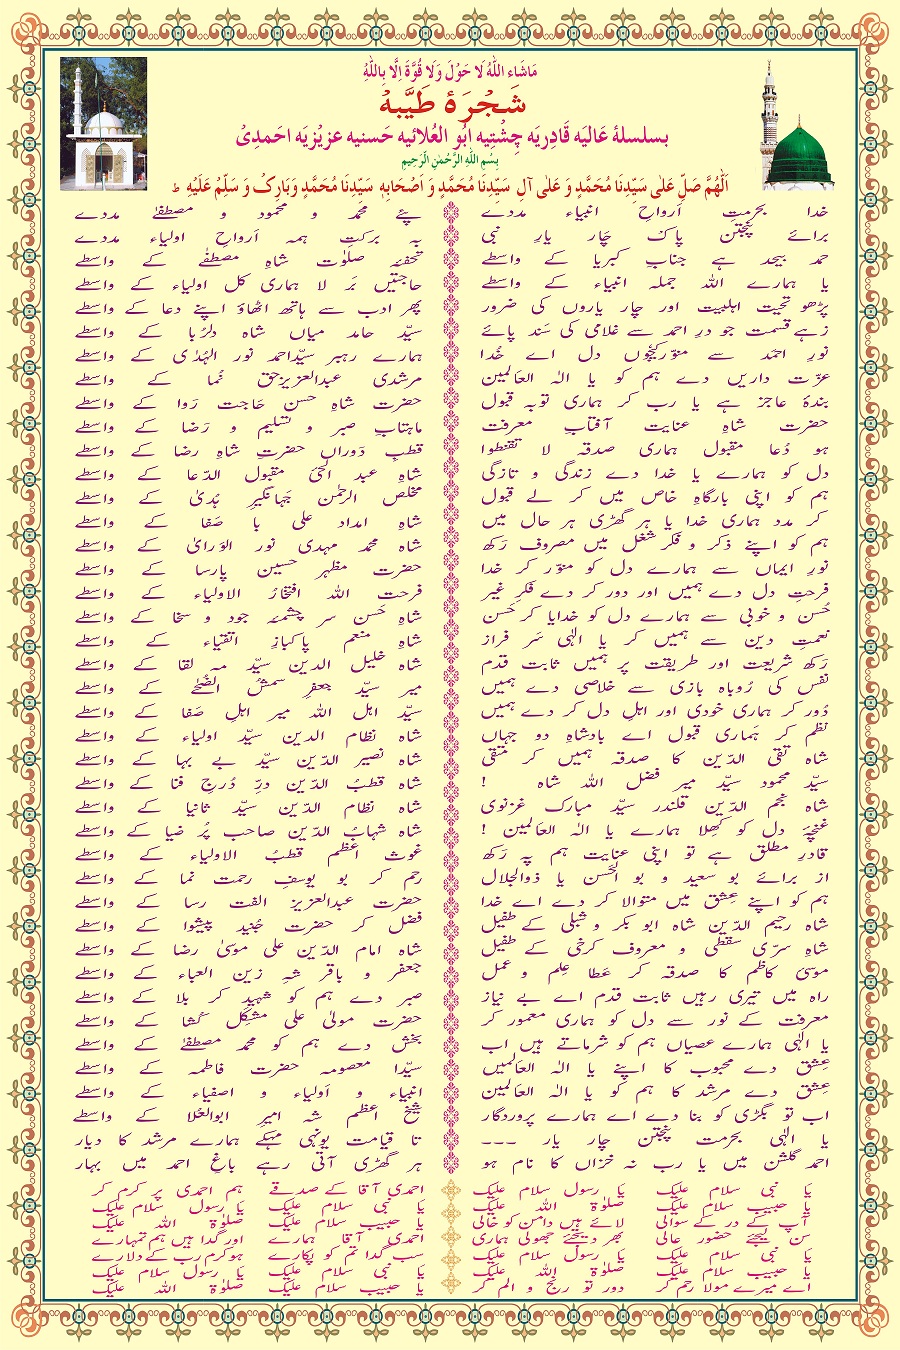 مَاشَاء اللّٰهُ لَا حَوْلَ وَلَا قُوَّةَ اِلَّا بِاللّٰهِ
شَجْرَۂ طَیِّبَہ
بسلسلۂ عَالیَہ قَادِریَہ چِشْتِیہ ابُو العُلائیہ حَسنیہ عزیزیَہ احمدِیْ
بِسْمِ اللّٰهِ الرَّحْمٰنِ الرَّحِيْمِ
اَللّٰهُمَّ صَلِّ عَلٰى سَيِّدِنَا مُحَمَّدٍ وَ عَلٰى آلِ سَيِّدِنَا مُحَمَّدٍ وَ اَصْحَابِهٖ سَيِّدِنَا مُحَمَّدٍ وَبَارِکْ وَ سَلِّمْ عَلَيْهِ ط
خدا بحرمتِ اَرواحِ انبیاء مددے پئے محمد و محمود و مصطفےٰ مددے
برائے پنجتن پاک چار یارِ نبی بہ برکتِ ہمہ اَرواحِ اولیاء مددے
حمد بیحد ہے جنابِ کبریا کے واسطے تحفۂ صلوٰت شاہِ مصطفٰے کے واسطے
یا ہمارے اللہ جملہ انبیاء کے واسطے حاجتیں بَر لا ہماری کل اولیاء کے واسطے
پڑھو تحیت اہلبیت اور چار یاروں کی ضرور پھر ادب سے ہاتھ اٹھاؤ اپنے دعا کے واسطے
زہے قسمت جو درِ احمد سے غلامی کی سَند پائے سیّد حامد میاں شاہ دلرُبا کے واسطے
نورِ احمد سے منوّر کیجُوں دل اے خُدا ہمارے رہبر سیّداحمد نور الہُدٰی کے واسطے
عزّت داریں دے ہم کو یا الٰہ العَالمین مرشدی عبدالعزیزحق نُما کے واسطے
بندۂ عاجز ہے یا رب کر ہماری توبہ قبول حضرت شاہِ حسن حَاجت رَوا کے واسطے
حضرت شاہِ عنایت آفتابِ معرفت ماہتابِ صبر و تسلیم و رَضا کے واسطے
ہو دُعا مقبول ہماری صدقہ لا تقنطوا قطبِ دَوراں حضرتِ شاہِ رضا کے واسطے
دل کو ہمارے یا خدا دے زندگی و تازگی شاہ عبد الحیٔ مقبول الدّعا کے واسطے
ہم کو اپنی بارگاہِ خاص میں کر لے قبول مخلص الرحمٰن جَہانگیرِ ہُدیٰ کے واسطے
کر مدد ہماری خدا یا ہر گھڑی ہر حال میں شاہِ امداد علی با صَفا کے واسطے
ہم کو اپنے ذکر و فکر شغل میں مصروف رَکھ شاہ محمد مہدی نور الوَرایٰ کے واسطے
نورِ ایماں سے ہمارے دل کو منوّر کر خدا حضرت مظہر حسین پارسا کے واسطے
فرحتِ دل دے ہمیں اور دور کر دے فکرِ غیر فرحت اللہ افتخارُ الاولیاء کے واسطے
حُسن و خوبی سے ہمارے دل کو خدایا کر حُسن شاہِ حَسن سر چشمۂ جود و سخا کے واسطے
نعمتِ دین سے ہمیں کر یا الٰہی سَر فراز شاہِ منعم پاکبازِ اتقیاء کے واسطے
رَکھ شریعت اور طریقت پر ہمیں ثابت قدم شاہ خلیل الدین سیّد مہ لقا کے واسطے
نفس کی رُوباہ بازی سے خلاصی دے ہمیں میر سیّد جعفرِ سمشُ الضُّحٰے کے واسطے
دُور کر ہماری خودی اور اہلِ دل کر دے ہمیں سیّد اہل اللہ میر اہلِ صَفا کے واسطے
نظم کر ہَماری قبول اے بادشاہِ دو جہاں شاہ نظام الدین سیّد اولیاء کے واسطے
شاہ تقیٔ الدّین کا صدقہ ہمیں کر متّقی شاہ نصیر الدّین سیّد بے بہا کے واسطے
سیّد محمود سیّد میر فضل اللہ شاہ ! شاہ قطبُ الدّین درِّ دُرجِ فنا کے واسطے
شاہ نجم الدّین قلندر سیّد مبارک غزنوی شاہ نظام الدّین سیّد ثانیا کے واسطے
غنچۂ دل کو کھلا ہمارے یا الٰہ العَالمین ! شاہ شہابُ الدّین صاحب پُر ضیا کے واسطے
قادرِ مطلق ہے تو اپنی عنایت ہم پہ رَکھ غوث اعظم قطبُ الاولیاء کے واسطے
از برائے بو سعید و بو الحَسن یا ذوالجلال رحم کر بو یوسفِ رحمت نما کے واسطے
ہم کو اپنے عِشق میں متوالا کر دے اے خدا حضرت عبدالعزیز الفت رسا کے واسطے
شاہ رحیم الدّین شاہ ابو بکر و شبلی کے طفیل فضل کر حضرت جُنید پیشوا کے واسطے
شاہِ سرّی سقطی و معروف کرخی کے طفیل شاہ امام الدّین علی موسیٰ رضا کے واسطے
موسیٰ کاظم کا صدقہ کر عَطا عِلم و عمل جعفر و باقر شہِ زین العباء کے واسطے
راہ میں تیری رہیں ثابت قدم اے بے نیاز صبر دے ہم کو شہیدِ کر بلا کے واسطے
معرفت کے نور سے دل کو ہماری معمور کر حضرت مولیٰ علی مشکِل کُشا کے واسطے
یا الٰہی ہمارے عصیاں ہم کو شرماتے ہیں اب بخش دے ہم کو محمد مصطفےٰ کے واسطے
عِشق دے محبوب کا اپنے یا الٰہ العَالمیں سیّدا معصومہ حضرت فاطمہ کے واسطے
عِشق دے مرشد کا ہم کو یا الٰہ العَالمین انبیاء و اَولیاء و اصفیاء کے واسطے
اب تو بگڑی کو بنا دے اے ہمارے پروردگار شیخِ اعظم شہ امیرِ ابوالعُلا کے واسطے
یا الٰہی بحرمت پنجتن چار یار ۔۔۔ تا قیامت یونہی مہکے ہمارے مرشد کا دیار
احمد گلشن میں یا رب نہ خزاں کا نام ہو ہر گھڑی آتی رہے باغِ احمد میں بہار
یا نبی سلام علیک یا رسول سلام علیک
یا حبیب سلام علیک صلوٰۃ اللہ علیک
آپ کے در کے سوالی لائے ہیں دامن کو خالی
سن لیجئے حضور عالی بھر دیجئے جھولی ہماری
یا نبی سلام علیک یا رسول سلام علیک
یا حبیب سلام علیک صلوٰۃ اللہ علیک
اے میرے مولا رحم کر دور تو رنج و الم کر
احمدی آقا کے صدقے ہم احمدی پر کرم کر
یا نبی سلام علیک یا رسول سلام علیک
یا حبیب سلام علیک صلوٰۃ اللہ علیک
احمدی آقا ہمارے اور گدا ہیں ہم تمہارے
سب گدا تم کو پکارے ہو کرم رب کے دلارے
یا نبی سلام علیک یا رسول سلام علیک
یا حبیب سلام علیک صلوٰۃ اللہ علیک